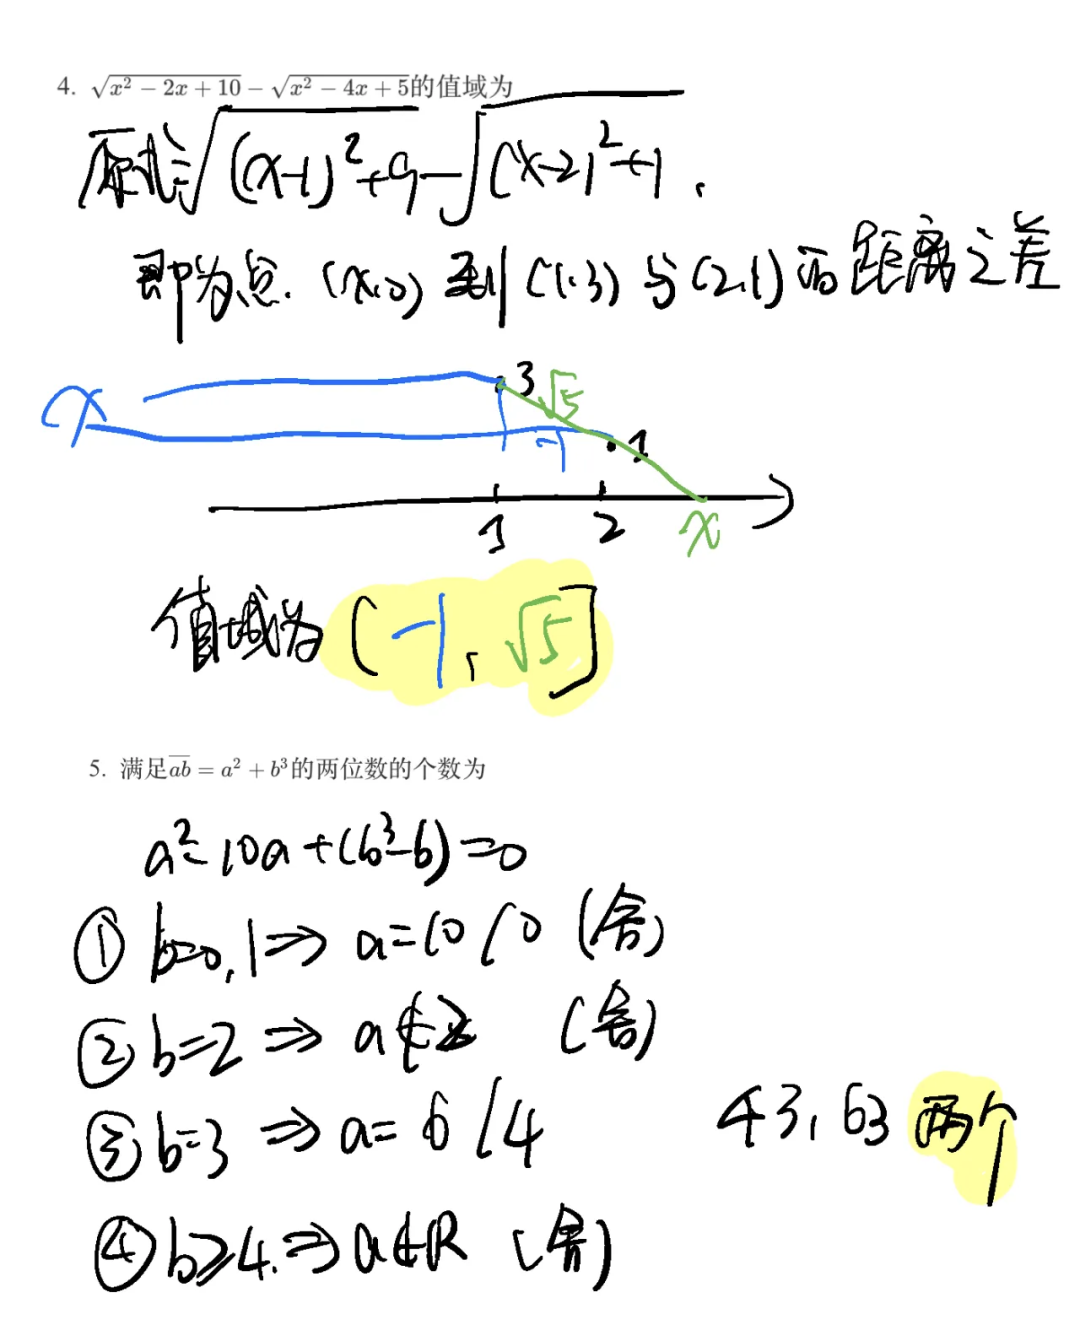 4. √(x² − 2x + 10) − √(x² − 4x + 5)的值域为
原式=√((x-1)²+9) - √((x-2)²+1) .
即为点 (x,0) 到 (1,3) 与 (2,1) 的距离之差
x 3 √5
-1 1
1 2 x
值域为 (-1, √5]
5. 满足a̅b̅ = a² + b³的两位数的个数为
a²-10a+(b³-b)=0
① b=0,1 ⇒ a=10/0 (舍)
② b=2 ⇒ a∉Z (舍)
③ b=3 ⇒ a=6/4
43, 63 两个
④ b≥4. ⇒ a∉R (舍)